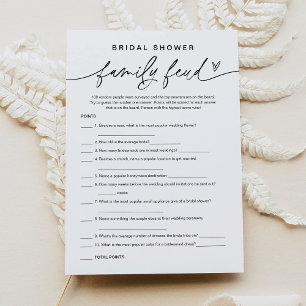 BRIDAL SHOWER
family feud
100 random people were surveyed and the top answers are on the board.
Try to guess the number one answer. Points will be scored for each answer
that is on the board. Person with the highest score wins!
POINTS
1. Besides a rose, what is the most popular wedding flower?
2. How old is the average bride?
3. How many bridesmaids are in most weddings?
4. Besides a church, name a popular location to get married.
5. Name a popular honeymoon destination
6. How many weeks before the wedding should invitations be sent out?
weeks
7. What is the most popular small appliance given at a bridal shower?
8. Name something the couple does at their wedding ceremony
9. What's the average number of dresses the bride tries on?
10. What is the most popular color for a bridesmaid dress?
TOTAL POINTS